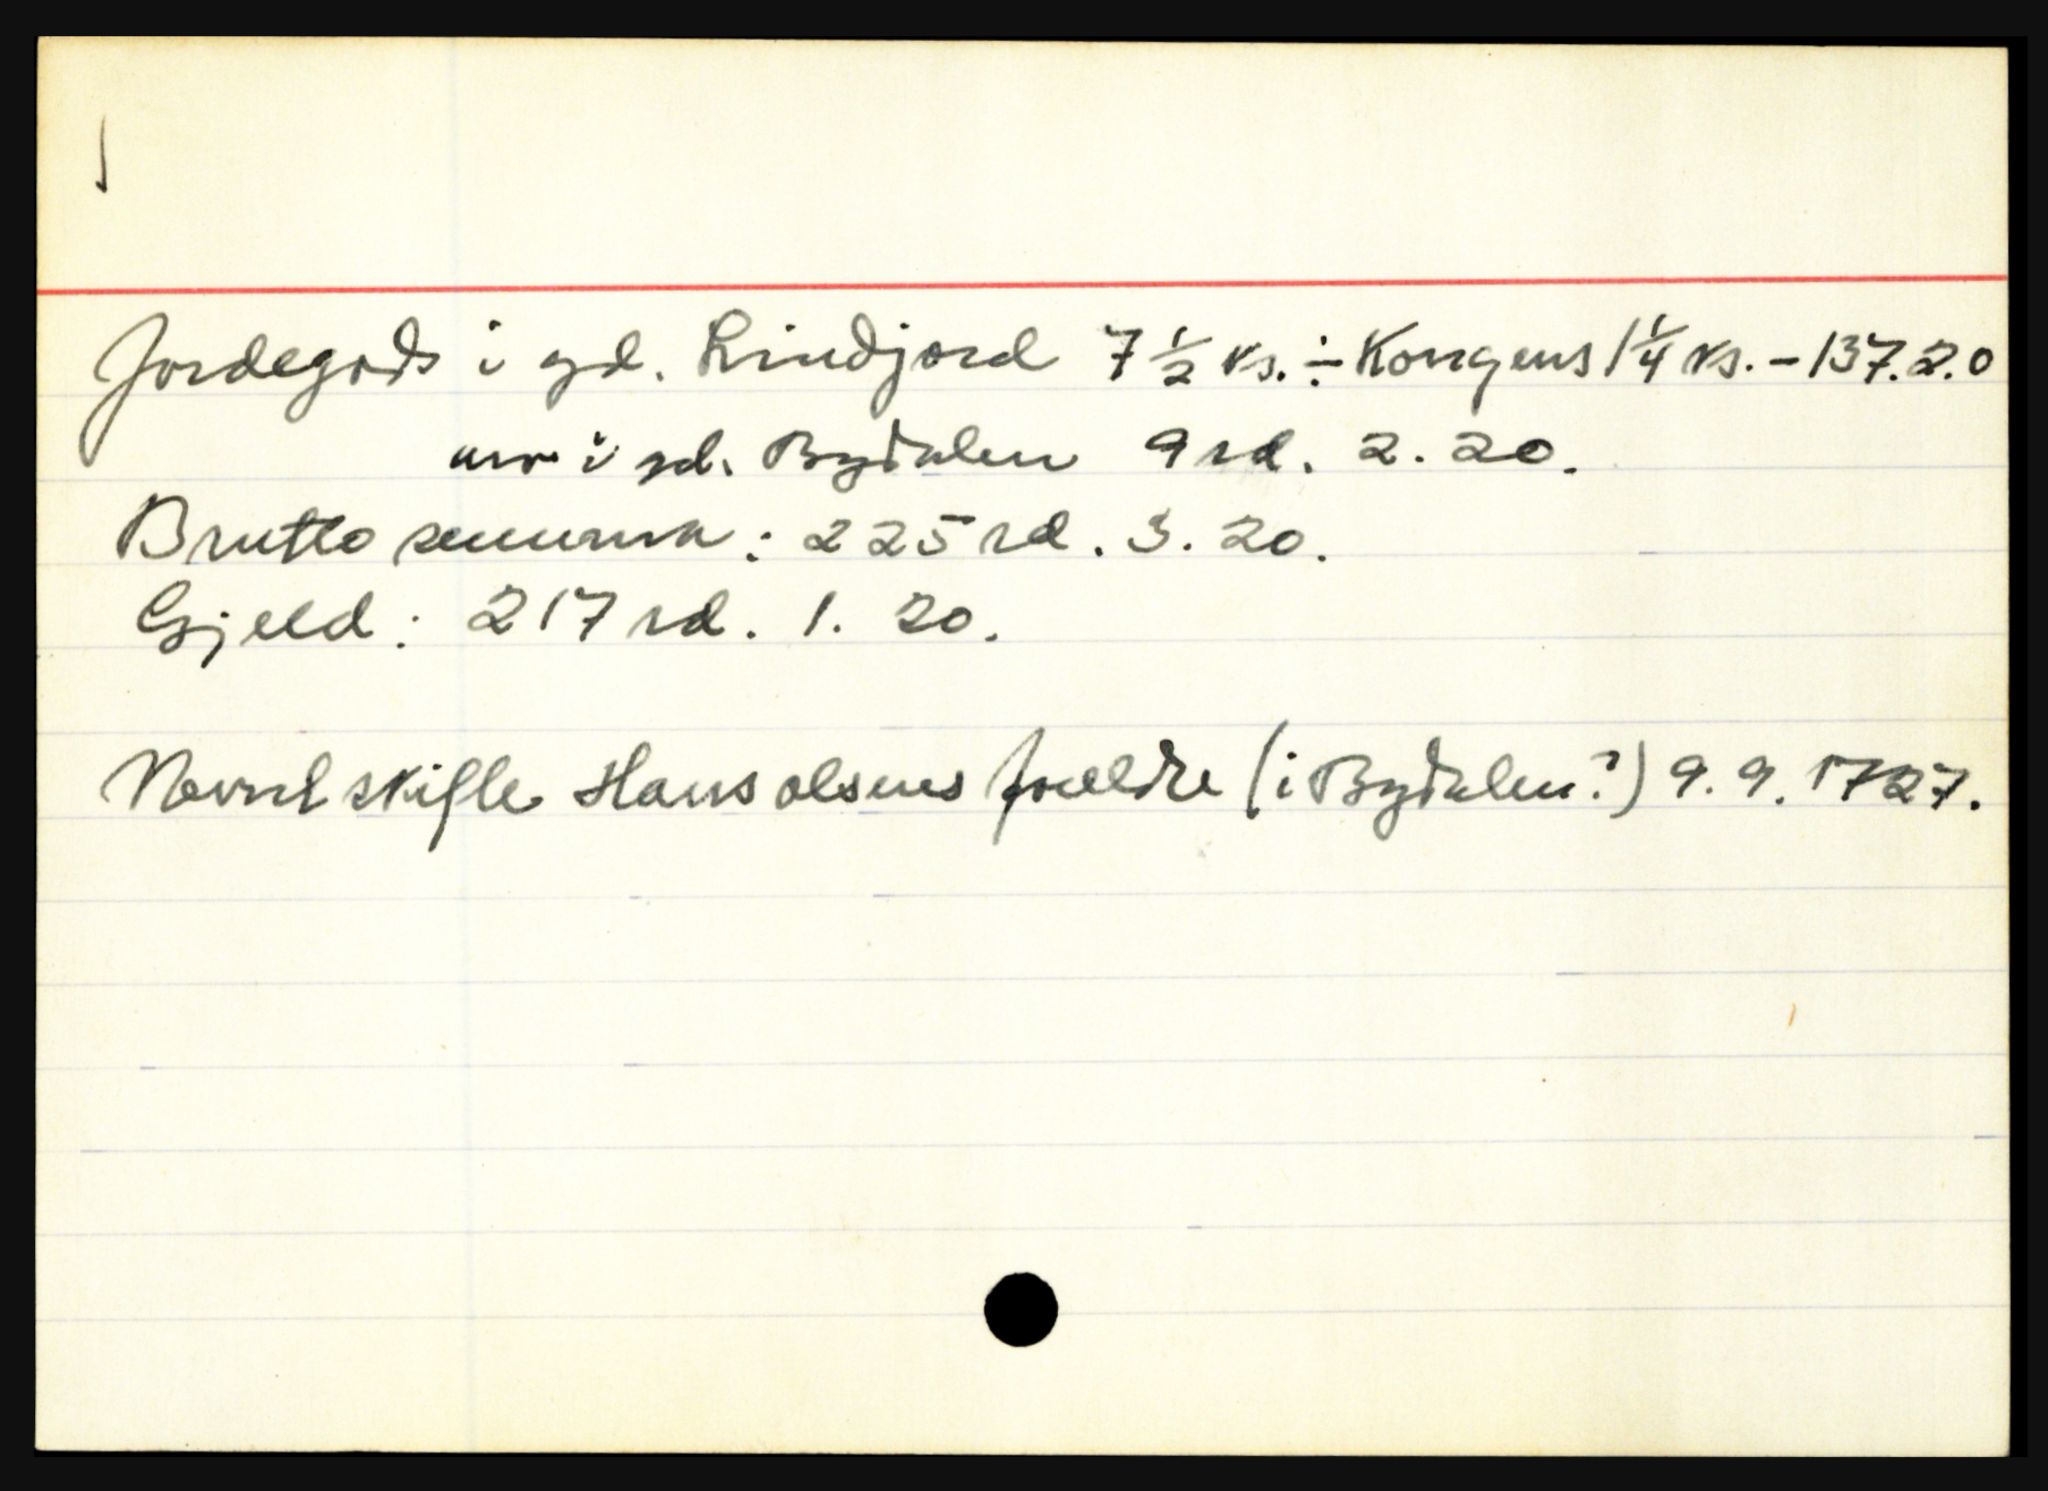 Jordegods i gd. Lindjord 7 1/2 ks. ÷ Kongens 1 1/4 ks. - 137.2.0
arv i gd. Bydalen 9 rd. 2. 20.
Brutto summa: 225 rd. 3. 20.
Gjeld: 217 rd. 1. 20.
Nevnt skifte Hans Olsens foreldre (i Bydalen?) 9. 9. 1727.